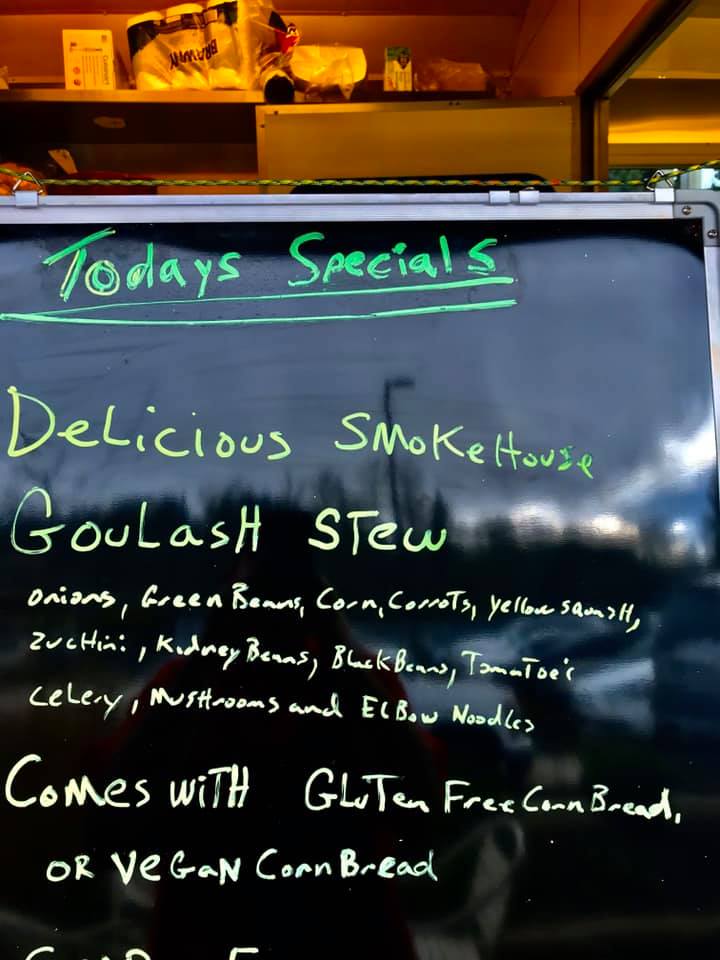 BRAWNY
Todays Specials
Delicious Smokehouse
Goulash Stew
onions, Green Beans, Corn, Carrots, yellow squash,
zuchini, Kidney Beans, Black Beans, Tomatoe's
celery, Mushrooms and Elbow Noodles
Comes with Gluten Free Corn Bread,
or Vegan Corn Bread